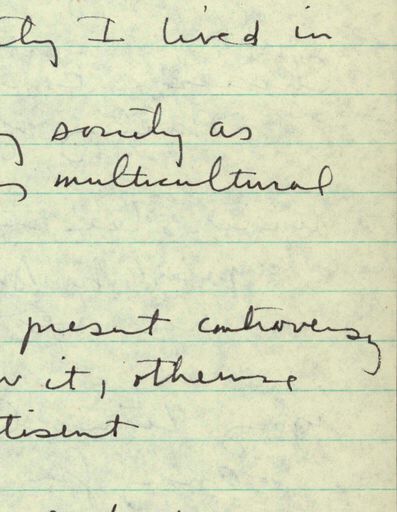 I lived in
society as
multicultural
present controversy
it, otherwise